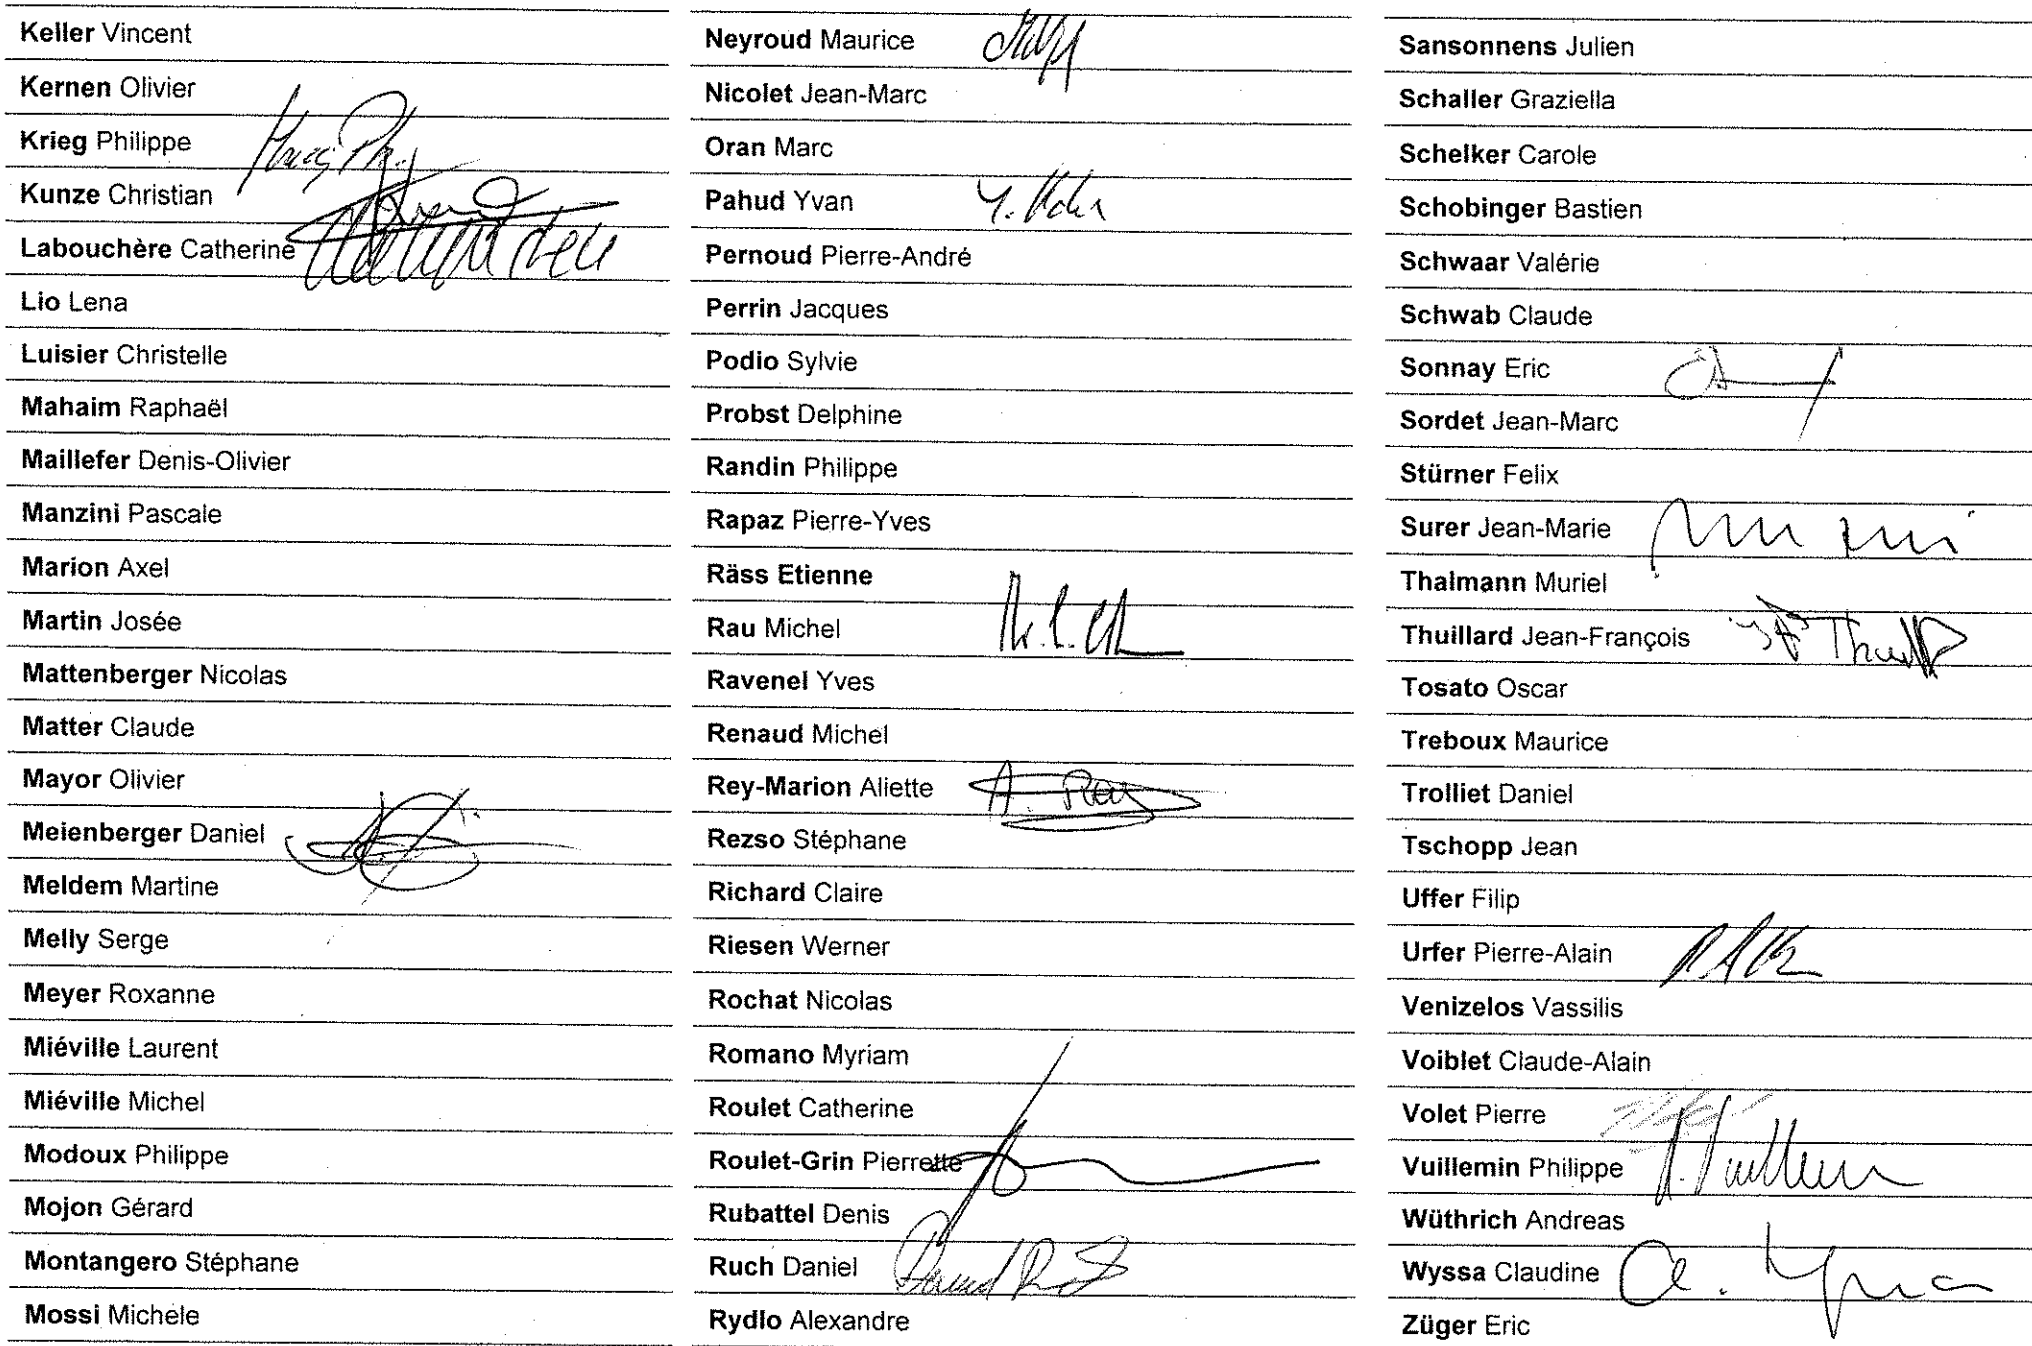 Keller Vincent
Kernen Olivier
Krieg Philippe
Kunze Christian
Labouchère Catherine
Lio Lena
Luisier Christelle
Mahaim Raphaël
Maillefer Denis-Olivier
Manzini Pascale
Marion Axel
Martin Josée
Mattenberger Nicolas
Matter Claude
Mayor Olivier
Meienberger Daniel
Meldem Martine
Melly Serge
Meyer Roxanne
Miéville Laurent
Miéville Michel
Modoux Philippe
Mojon Gérard
Montangero Stéphane
Mossi Michele
Neyroud Maurice
Nicolet Jean-Marc
Oran Marc
Pahud Yvan
Pernoud Pierre-André
Perrin Jacques
Podio Sylvie
Probst Delphine
Randin Philippe
Rapaz Pierre-Yves
Räss Etienne
Rau Michel
Ravenel Yves
Renaud Michel
Rey-Marion Aliette A. Rey
Rezso Stéphane
Richard Claire
Riesen Werner
Rochat Nicolas
Romano Myriam
Roulet Catherine
Roulet-Grin Pierrette
Rubattel Denis
Ruch Daniel
Rydlo Alexandre
Sansonnens Julien
Schaller Graziella
Schelker Carole
Schobinger Bastien
Schwaar Valérie
Schwab Claude
Sonnay Eric
Sordet Jean-Marc
Stürner Felix
Surer Jean-Marie
Thalmann Muriel
Thuillard Jean-François
Tosato Oscar
Treboux Maurice
Trolliet Daniel
Tschopp Jean
Uffer Filip
Urfer Pierre-Alain
Venizelos Vassilis
Voiblet Claude-Alain
Volet Pierre
Vuillemin Philippe
Wüthrich Andreas
Wyssa Claudine
Züger Eric